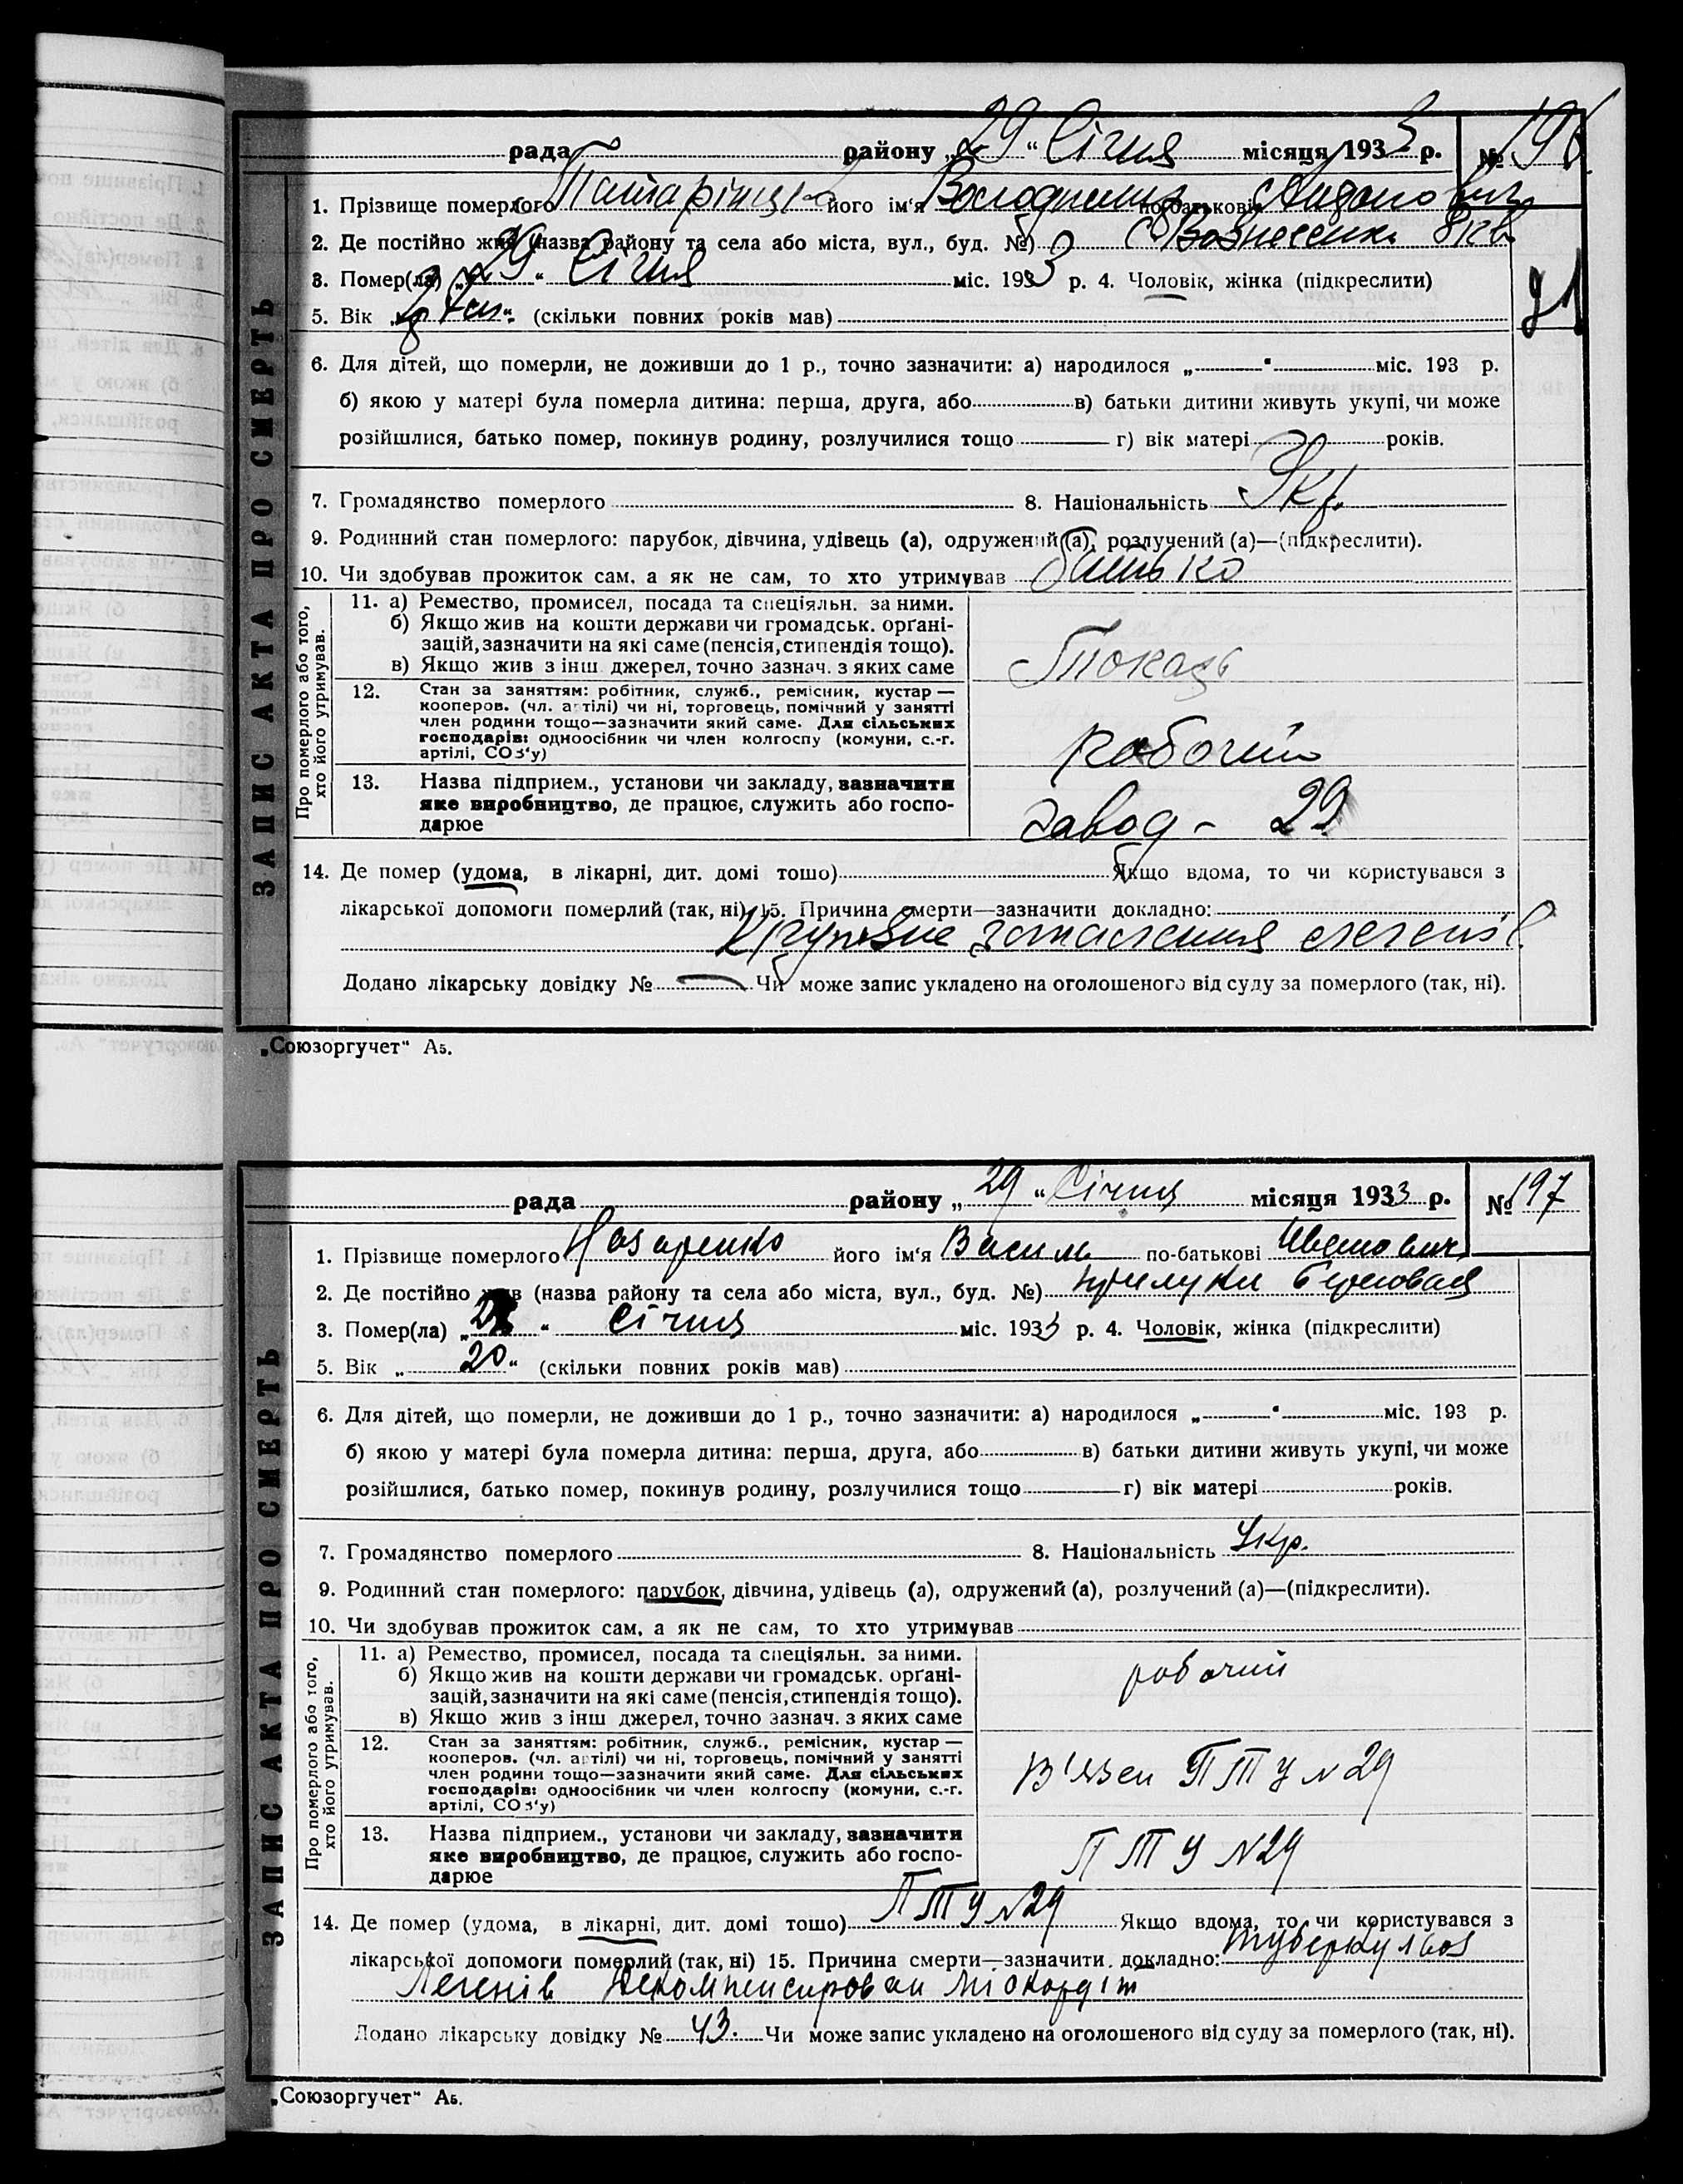 ЗАПИС АКТА ПРО СМЕРТЬ
рада району „29“ Січня місяця 1933 р. № 196
1. Прізвище померлого його ім'я Володимир по-батькові
2. Де постійно жив (назва району та села або міста, вул., буд. №) с Вознесенка
3. Помер(ла) „29“ Січня міс. 1933 р. 4. Чоловік, жінка (підкреслити)
5. Вік „ “ (скільки повних років мав)
6. Для дітей, що померли, не доживши до 1 р., точно зазначити: а) народилося „—“ міс. 193 р.
б) якою у матері була померла дитина: перша, друга, або в) батьки дитини живуть укупі, чи може
розійшлися, батько помер, покинув родину, розлучилися тощо г) вік матері років.
7. Громадянство померлого 8. Національність Укр.
9. Родинний стан померлого: парубок, дівчина, удівець (а), одружений (а), розлучений (а)—(підкреслити).
10. Чи здобував прожиток сам, а як не сам, то хто утримував батько
Про померлого або того, хто його утримував.
11. а) Ремество, промисел, посада та спеціяльн. за ними.
б) Якщо жив на кошти держави чи громадськ. орґані-
зацій, зазначити на які саме (пенсія, стипендія тощо).
в) Якщо жив з інш джерел, точно зазнач. з яких саме
Токарь
12. Стан за заняттям: робітник, служб., ремісник, кустар —
кооперов. (чл. артілі) чи ні, торговець, помічний у занятті
член родини тощо—зазначити який саме. Для сільських
господарів: одноосібник чи член колгоспу (комуни, с.-г.
артілі, СОЗ'у)
рабочий
13. Назва підприєм., установи чи закладу, зазначити
яке виробництво, де працює, служить або госпо-
дарює
завод - 29
14. Де помер (удома, в лікарні, дит. домі тошо) Якщо вдома, то чи користувався з
лікарської допомоги померлий (так, ні) 15. Причина смерти—зазначити докладно:
Крупозне запалення легенів
Додано лікарську довідку № — Чи може запис укладено на оголошеного від суду за померлого (так, ні).
„Союзоргучет“ А5.
ЗАПИС АКТА ПРО СМЕРТЬ
рада району „29“ Січня місяця 1933 р. № 197
1. Прізвище померлого Назаренко його ім'я Василь по-батькові Іванович
2. Де постійно жив (назва району та села або міста, вул., буд. №) Прилуки
3. Помер(ла) „ “ Січня міс. 1933 р. 4. Чоловік, жінка (підкреслити)
5. Вік „20“ (скільки повних років мав)
6. Для дітей, що померли, не доживши до 1 р., точно зазначити: а) народилося „—“ міс. 193 р.
б) якою у матері була померла дитина: перша, друга, або в) батьки дитини живуть укупі, чи може
розійшлися, батько помер, покинув родину, розлучилися тощо г) вік матері років.
7. Громадянство померлого 8. Національність Укр.
9. Родинний стан померлого: парубок, дівчина, удівець (а), одружений (а), розлучений (а)—(підкреслити).
10. Чи здобував прожиток сам, а як не сам, то хто утримував
Про померлого або того, хто його утримував.
11. а) Ремество, промисел, посада та спеціяльн. за ними.
б) Якщо жив на кошти держави чи громадськ. орґані-
зацій, зазначити на які саме (пенсія, стипендія тощо).
в) Якщо жив з інш джерел, точно зазнач. з яких саме
робочий
12. Стан за заняттям: робітник, служб., ремісник, кустар —
кооперов. (чл. артілі) чи ні, торговець, помічний у занятті
член родини тощо—зазначити який саме. Для сільських
господарів: одноосібник чи член колгоспу (комуни, с.-г.
артілі, СОЗ'у)
В'язен ПТУ N29
13. Назва підприєм., установи чи закладу, зазначити
яке виробництво, де працює, служить або госпо-
дарює
ПТУ N29
14. Де помер (удома, в лікарні, дит. домі тошо) ПТУ N29 Якщо вдома, то чи користувався з
лікарської допомоги померлий (так, ні) 15. Причина смерти—зазначити докладно: туберкульоз
Легенів Декомпенсирован міокардіт
Додано лікарську довідку № 43. Чи може запис укладено на оголошеного від суду за померлого (так, ні).
„Союзоргучет“ А5.